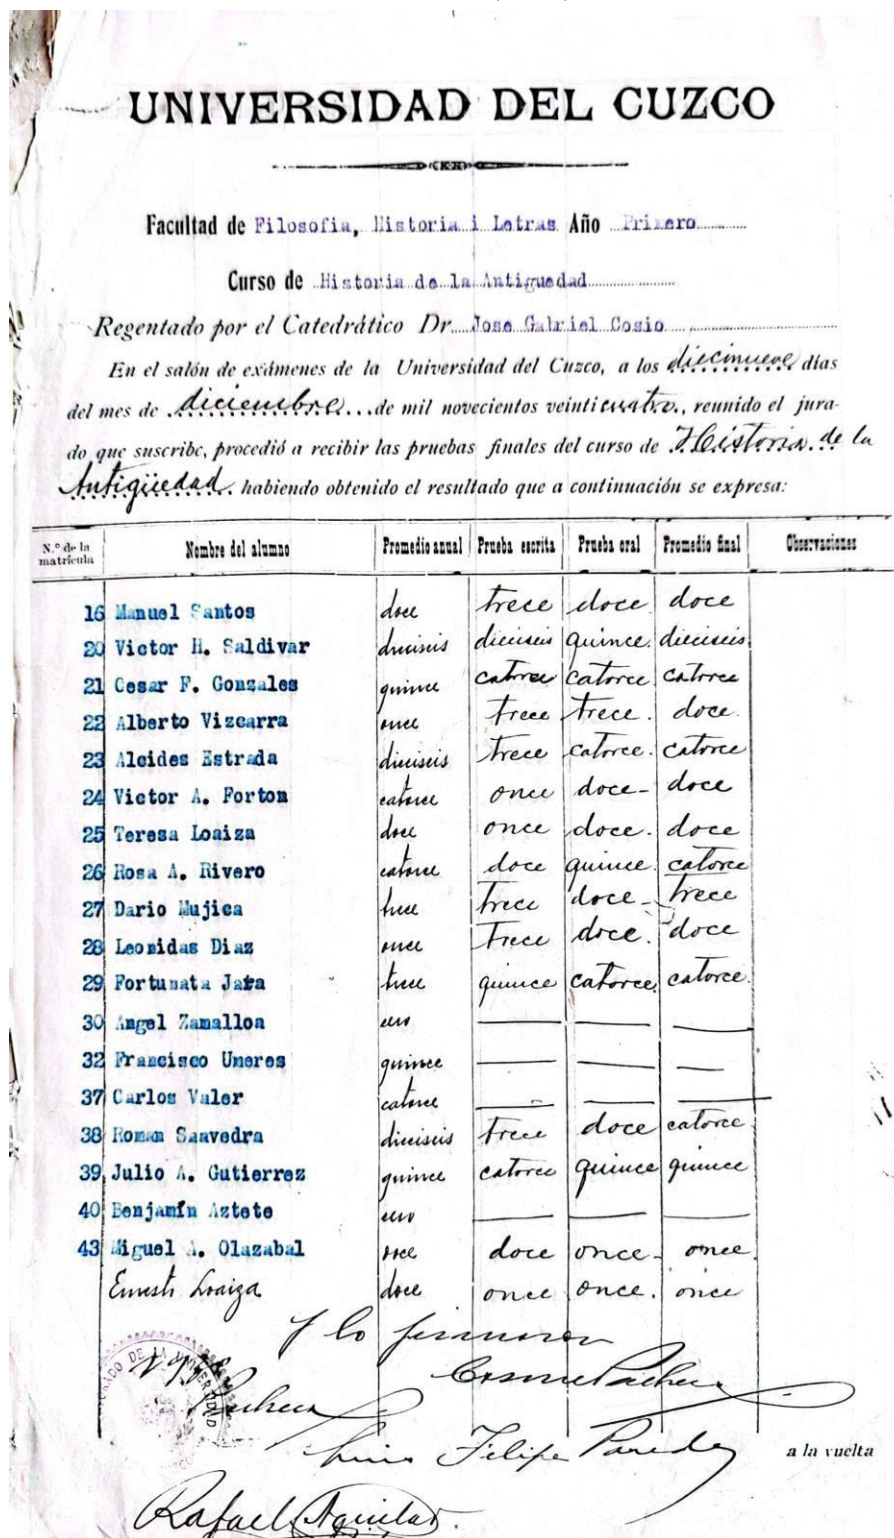 UNIVERSIDAD DEL CUZCO
Facultad de Filosofia, Historia i Letras Año Primero
Curso de Historia de la Antiguedad
Regentado por el Catedrático Dr. Jose Gabriel Cosio
En el salón de exámenes de la Universidad del Cuzco, a los diecinueve días
del mes de diciembre de mil novecientos veinticuatro, reunido el jura-
do que suscribe, procedió a recibir las pruebas finales del curso de Historia de la
Antigüedad. habiendo obtenido el resultado que a continuación se expresa:
N.º de la matrícula Nombre del alumno Promedio anual Prueba escrita Prueba oral Promedio final Observaciones
16 Manuel Santos doce trece doce doce
20 Victor H. Saldivar dieciseis dieciseis quince. dieciseis.
21 Cesar F. Gonzales quince catorce catorce catorce
22 Alberto Vizcarra once trece trece. doce.
23 Alcides Estrada dieciseis trece catorce. catorce
24 Victor A. Forton catorce once doce- doce
25 Teresa Loaiza doce once doce. doce
26 Rosa A. Rivero catorce doce quince. catorce
27 Dario Mujica trece trece doce- trece
28 Leonidas Diaz once trece doce. doce
29 Fortunata Jara trece quince catorce. catorce.
30 Angel Zamalloa cero
32 Francisco Umeres quince
37 Carlos Valer catorce
38 Roman Saavedra dieciseis trece doce catorce.
39 Julio A. Gutierrez quince catorce quince quince
40 Benjamín Aztete cero
43 Miguel A. Olazabal doce doce once- once.
Ernesto Loaiza doce once once. once
Y lo firmaron
Cosme Pacheco
Pacheco
Luis Felipe Paredes
a la vuelta
Rafael Aguilar.